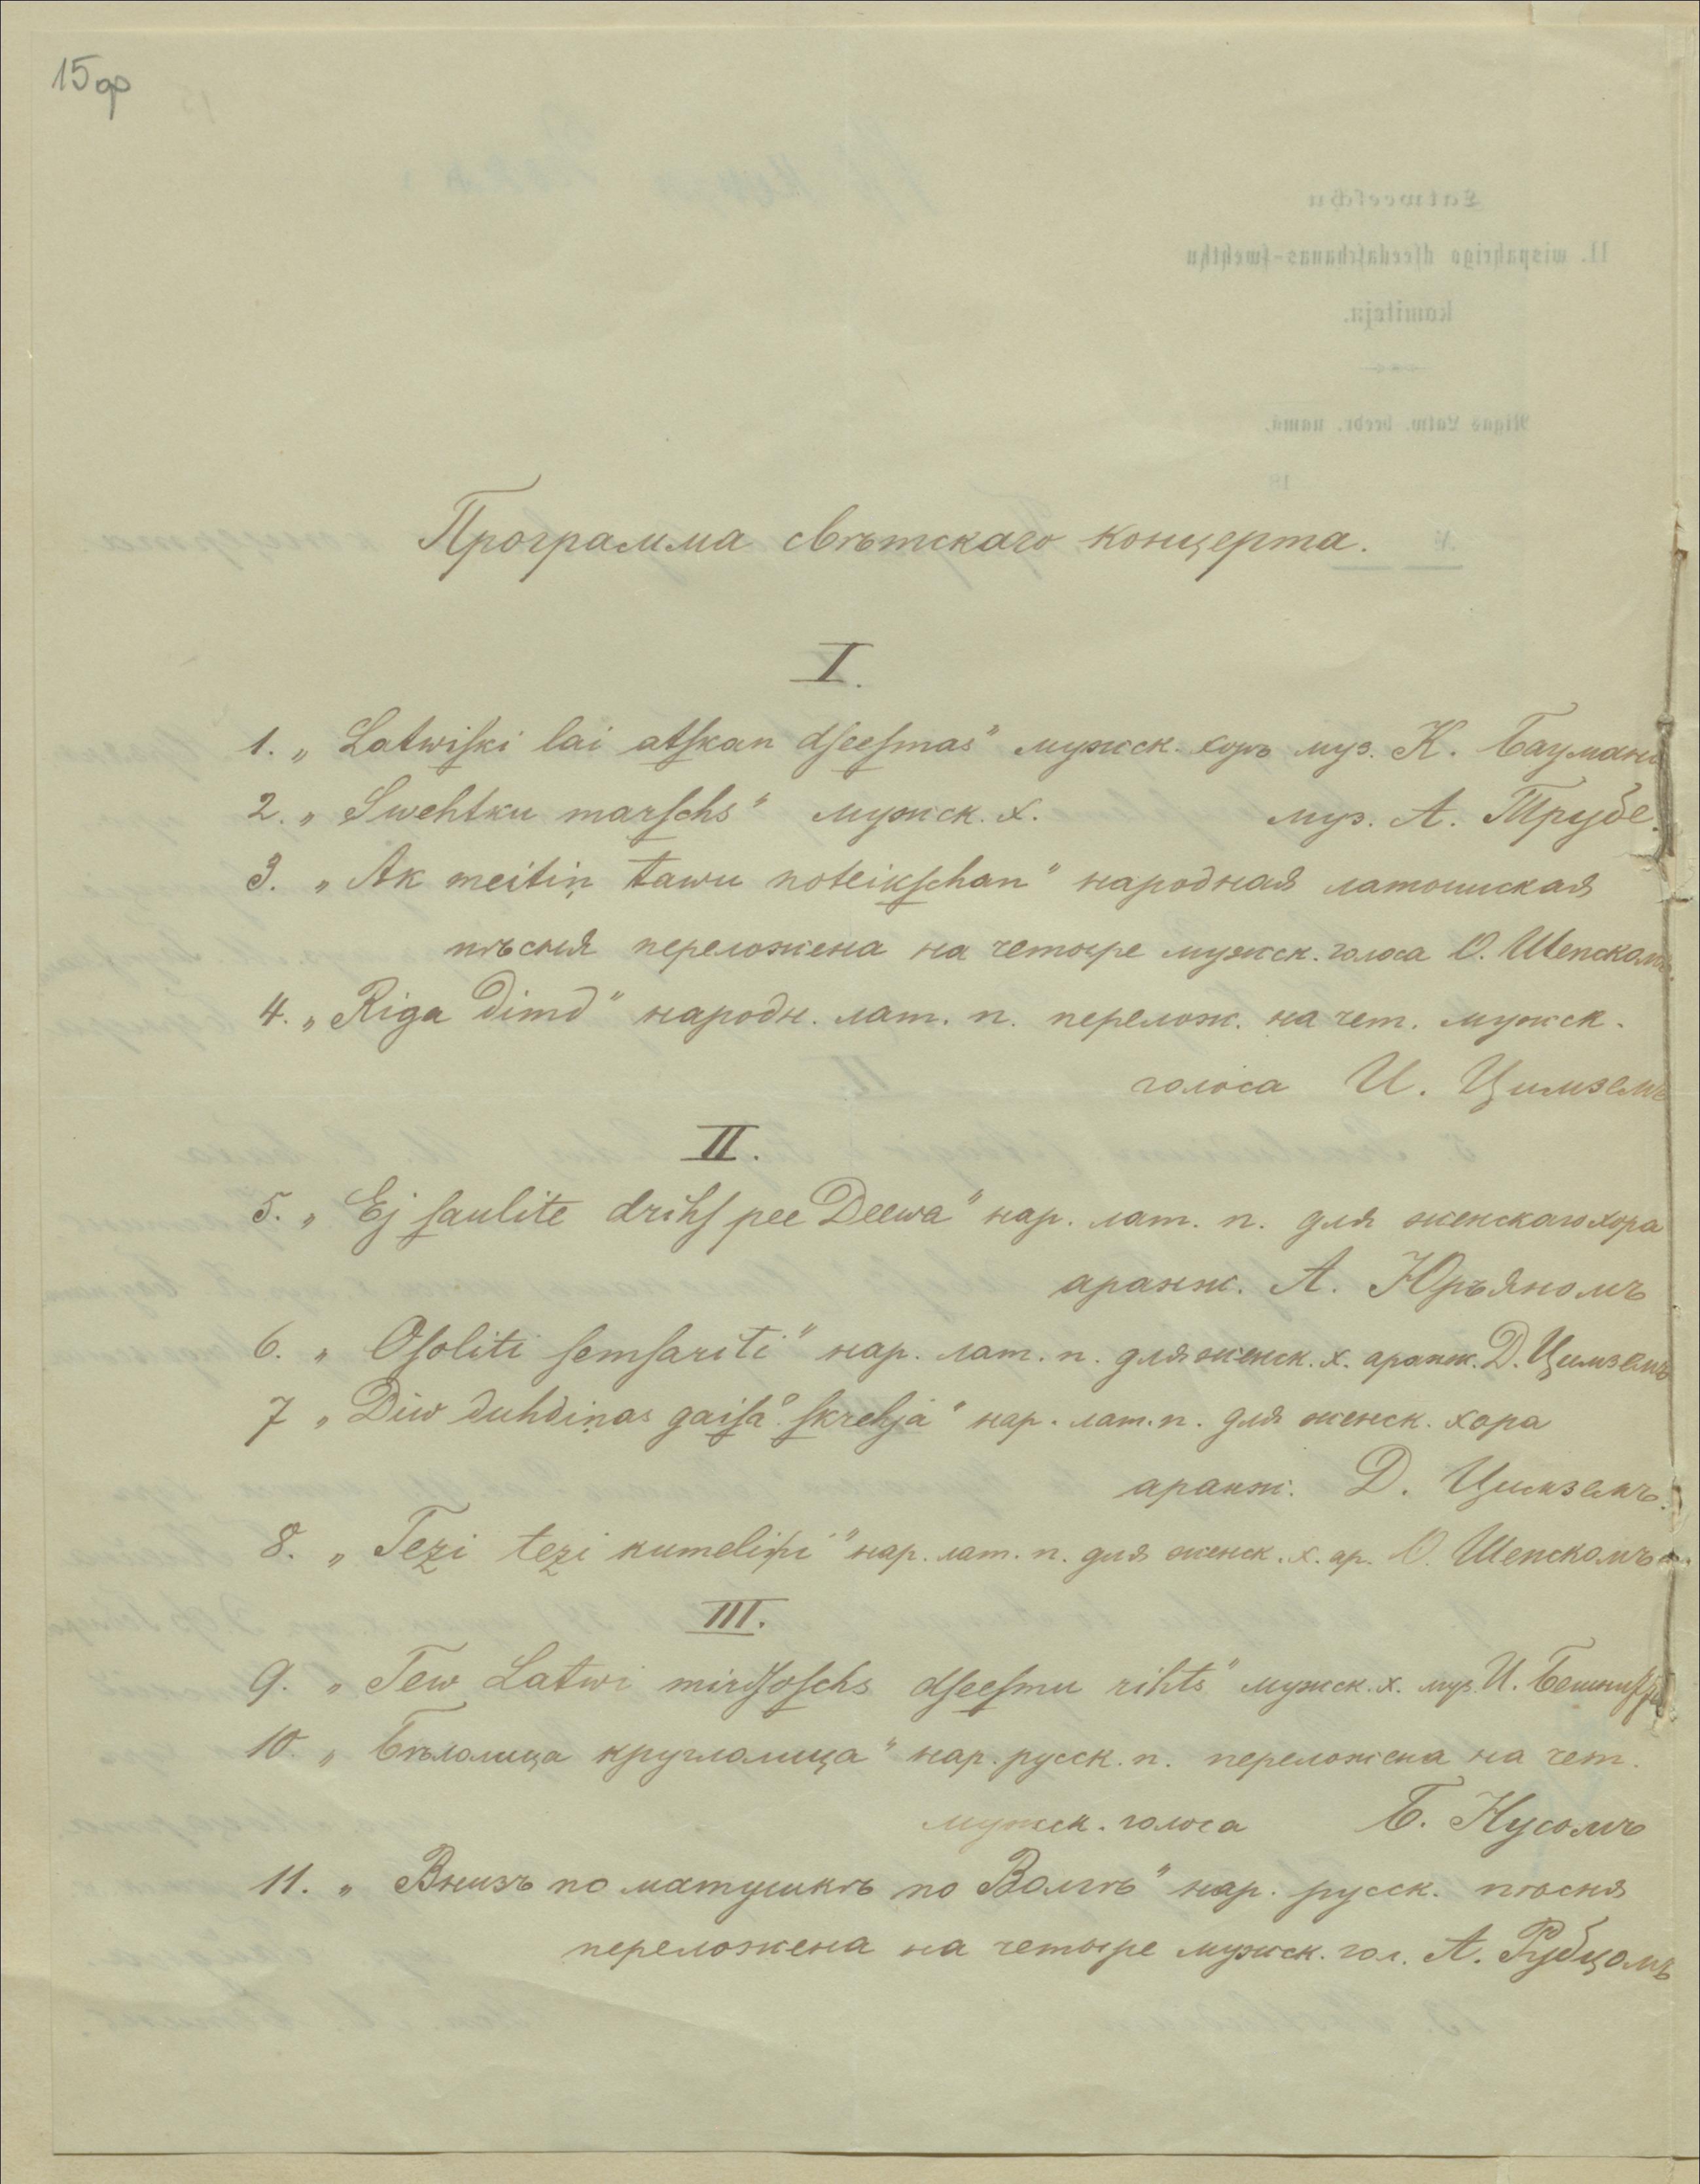 15 ор
Latweeſchu
II. wispahriga dſeedaſchanas-ſwehtku
komiteja.
Rigas Latw. beedr. namā.
18
Программа свѣтскаго концерта.
I.
1. „Latwiſki lai atſkan dſeeſmas" мужск. хоръ муз. К. Баумана
2. „Swehtku marſchs" мужск. х. муз. А. Трубе.
3. „Ak meitiņ tawu noteikſchan" народная латышская
пѣсня переложена на четыре мужск. голоса О. Шепскомъ.
4. „Riga dimd" народн. лат. п. перелож. на чет. мужск.
голоса И. Цимземъ
II.
5. „Ej ſaulite drihſ pee Deewa" нар. лат. п. для женскаго хора
аранж. А. Юръяномъ
6. „Oſoliti ſemſariti" нар. лат. п. для женск. х. аранж. Д. Цимземъ
7 „Diw duhdiņas gaiſâ ſkrehja" нар. лат. п. для женск. хора
аранж. Д. Цимземъ.
8. „Tezi tezi kumeliņi" нар. лат. п. для женск. х. ар. О. Шепскомъ
III.
9. „Tew Latwi mirdſoſchs dſeeſmu rihts" мужск. х. муз. И.
10. „Бѣлолица круглолица" нар. русск. п. переложена на чет.
мужск. голоса Б. Нусомъ
11. „Внизъ по матушкѣ по Волгѣ" нар. русск. пѣсня
переложена на четыре мужск. гол. А. Рубцомъ